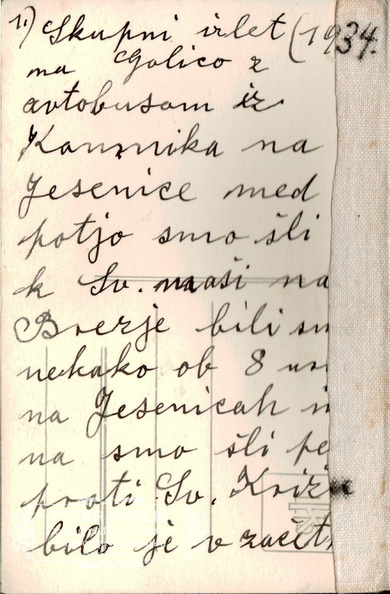 1.) Skupni izlet (1934.
na Golico z
avtobusom iz
Kamnika na
Jesenice med
potjo smo šli
k Sv. maši na
Brezje bili sm
nekako ob 8 uri
na Jesenicah in
na smo šli pe
proti Sv. Križ
bilo je v začet